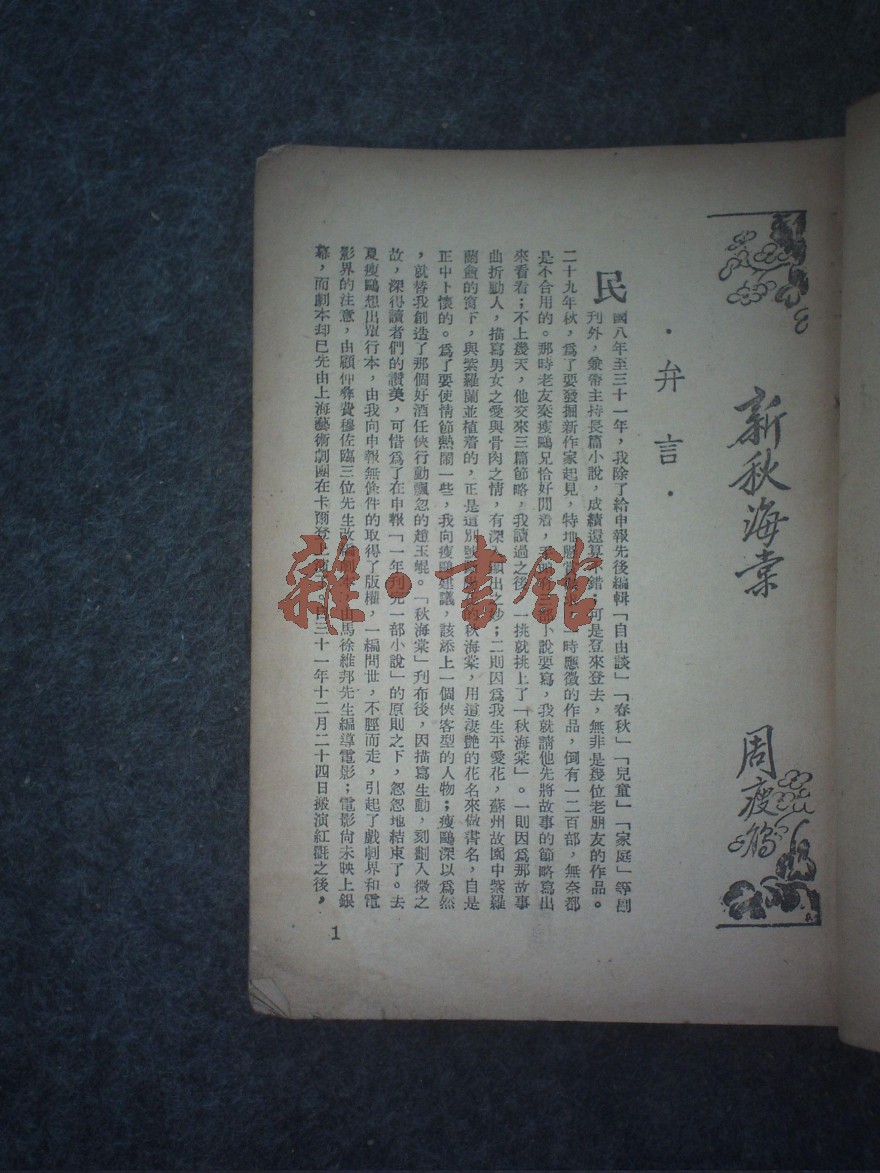 新秋海棠
周瘦鵑
·弁言·
民國八年至三十一年，我除了給申報先後編輯「自由談」「春秋」「兒童」「家庭」等副
刊外，兼帶主持長篇小說，成績還算不錯；可是登來登去，無非是幾位老朋友的作品。
二十九年秋，爲了要發掘新作家起見，特地懸賞 一時應徵的作品，倒有一二百部，無奈都
是不合用的。那時老友秦瘦鷗兄恰好閒着， 部小說要寫，我就請他先將故事的節略寫出
來看看；不上幾天，他交來三篇節略，我讀過之後，一挑就挑上了「秋海棠」。一則因爲那故事
曲折動人，描寫男女之愛與骨肉之情，有深入顯出之妙；二則因爲我生平愛花，蘇州故園中紫羅
蘭盦的窗下，與紫羅蘭並植着的，正是這別 的秋海棠，用這淒艷的花名來做書名，自是
正中下懷的。爲了要使情節熱鬧一些，我向瘦鷗建議，該添上一個俠客型的人物；瘦鷗深以爲然
，就替我創造了那個好酒任俠行動飄忽的趙玉崐。「秋海棠」刋布後，因描寫生動，刻劃入微之
故，深得讀者們的讚美，可惜爲了在申報「一年刋完一部小說」的原則之下，忽忽地結束了。去
夏瘦鷗想出單行本，由我向申報無條件的取得了版權，一編問世，不脛而走，引起了戲劇界和電
影界的注意，由顧仲彝費穆佐臨三位先生改編 由馬徐維邦先生編導電影；電影尙未映上銀
幕，而劇本却已先由上海藝術劇團在卡爾登上 三十一年十二月二十四日搬演紅氍之後，
1
雜·書館